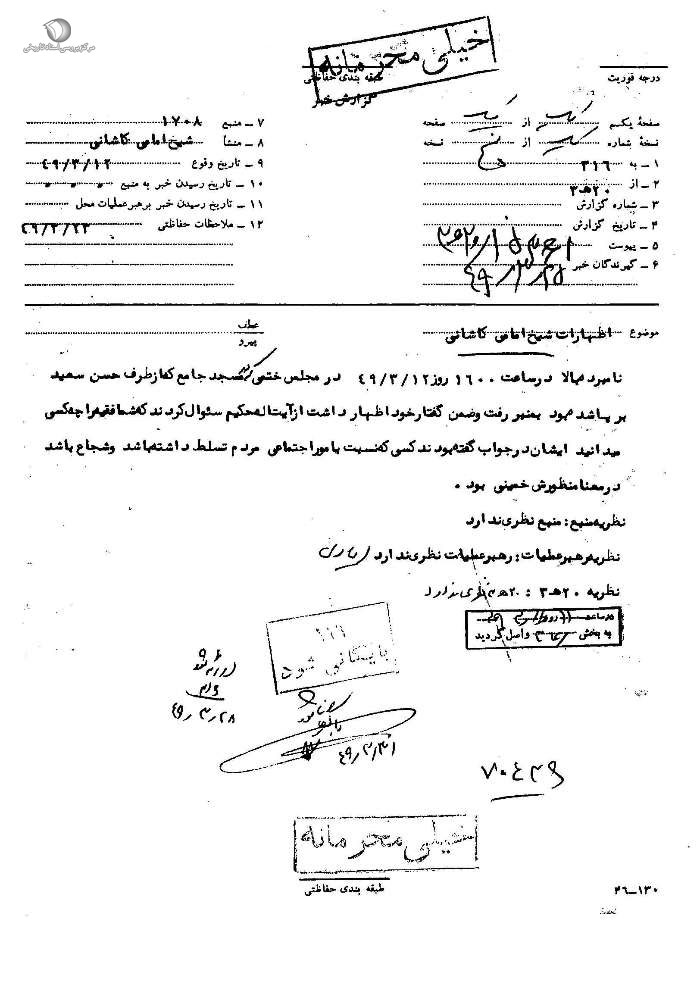 مرکز بررسی اسناد تاریخی
خیلی محرمانه
درجه فوریت
طبقه بندی حفاظتی
گزارش خبر
صفحهٔ یکم یک از یک صفحه
نسخهٔ شماره یک از نسخه
۱ ـ به ۳۱۶
۲ ـ از ۲۰هـ۳
۳ ـ شماره گزارش
۴ ـ تاریخ گزارش
۵ ـ پیوست
۶ ـ گیرندگان خبر
۷ ـ منبع ۱۷۰۸
۸ ـ منشأ شیخ امامی کاشانی
۹ ـ تاریخ وقوع ۴۹/۳/۱۲
۱۰ ـ تاریخ رسیدن خبر به منبع
۱۱ ـ تاریخ رسیدن خبر برهبر عملیات محل
۱۲ ـ ملاحظات حفاظتی ۴۹/۳/۲۳
موضوع اظهارات شیخ امامی کاشانی
عطف
پیرو
نامبرده بالا در ساعت ۱۶۰۰ روز ۴۹/۳/۱۲ در مجلس ختمی که در مسجد جامع که از طرف حسن سعید
برپا شده بود بمنبر رفت وضمن گفتار خود اظهار داشت از آیت اله حکیم سئوال کردند که شما فقیه را چه کسی
میدانید ایشان در جواب گفته بودند کسی که نسبت با مور اجتماعی مردم تسلط داشته باشد وشجاع باشد
در معنا منظورش خمینی بود .
نظریه منبع : منبع نظری ندارد
نظریه رهبر عملیات : رهبر عملیات نظری ندارد
نظریه ۲۰هـ۳ : ۲۰هـ۳ نظری ندارد
در ساعت
به بخش ۳۱۶ واصل گردید
بایگانی شود
۴۹/۳/۲۸
۴۹/۳/۳۱
۷۰۴۲۹
خیلی محرمانه
طبقه بندی حفاظتی
۲۶ــ۱۳۰